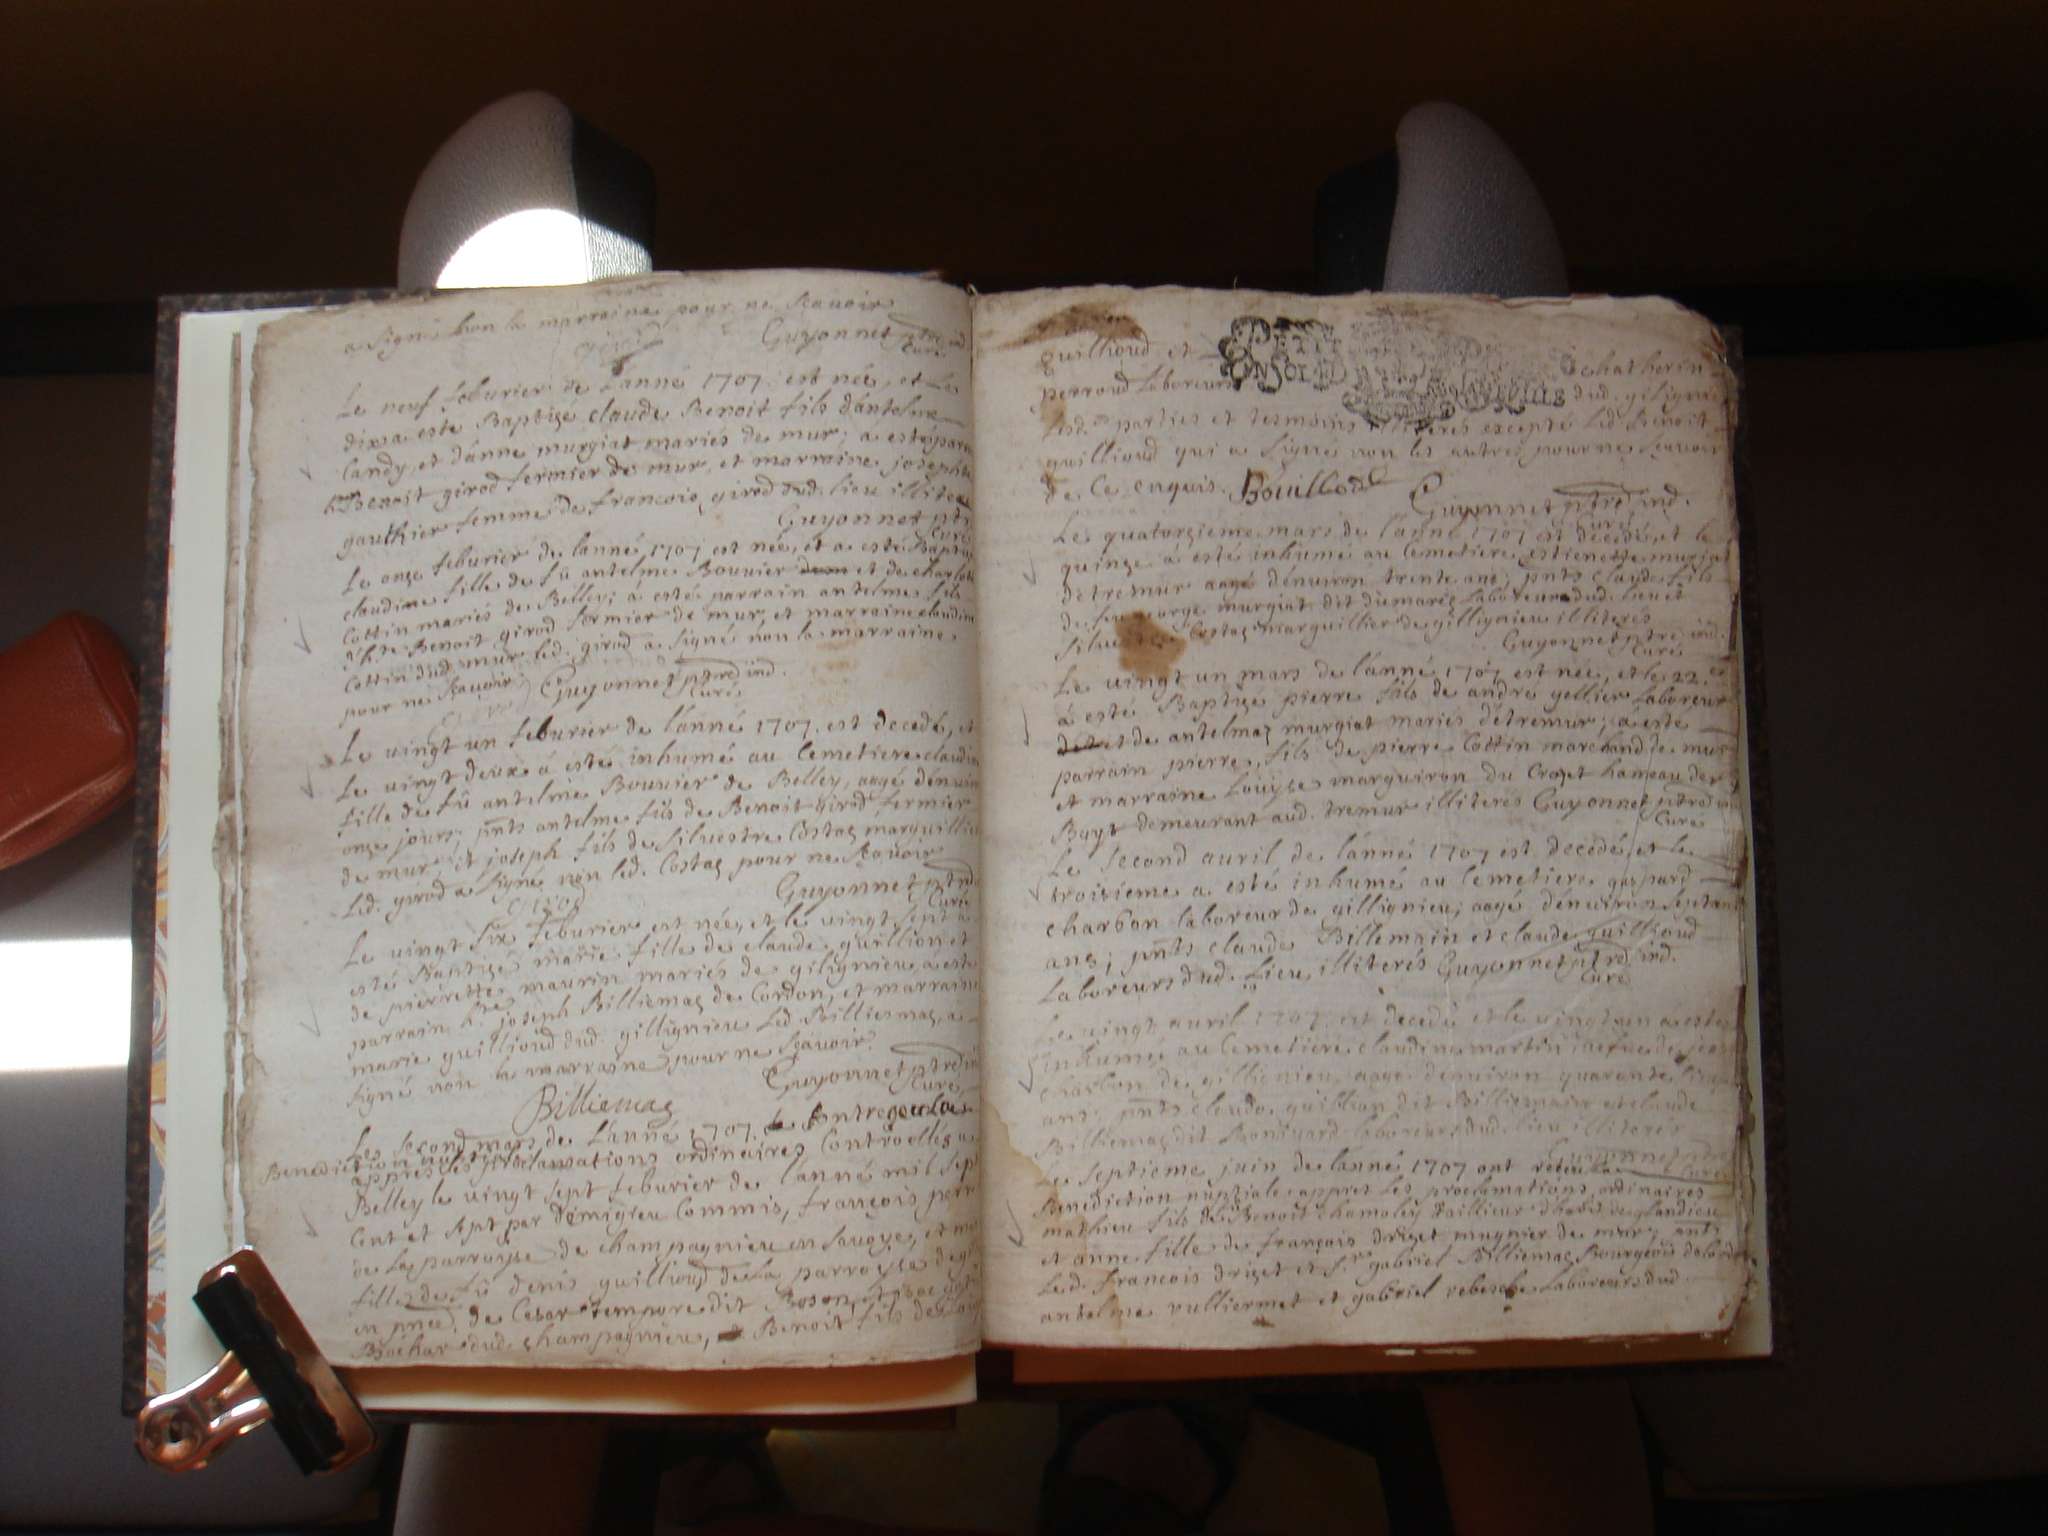 a signé non la marraine pour ne scauoir
girod
Guyonnet ptre ind.
Curé
Le neuf feburier de l'anné 1707 est née, et Le
dix a esté Baptize claude Benoit fils d'antelme
Candy, et d'anne murgiat mariés de mur; a esté parrain
hte Benoit girod fermier de mur, et marraine josephte
gauthier femme de francois girod dud. lieu illiteres
Guyonnet ptre
Curé
Le onze feburier de l'anné 1707 est née, et a esté Baptizé
claudine fille de fû antelme Bouuier et de charlotte
Cottin mariés de Belley; a esté parrain antelme fils
d'h.te Benoit girod fermier de mur, et marraine claudine
Cottin dud. mur led. girod a signé non la marraine
pour ne scauoir Guyonnet ptre ind.
Curé
girod
Le uingt un feburier de l'anné 1707. est decedé, et
Le uingt deux á esté inhumé au Cemetiere claudine
fille de fû antelme Bouuier de Belley, aagé denuiron
onze jours; pnts antelme fils de Benoit girod fermier
de mur, et joseph fils de siluestre Costaz marguillier
Led. girod a signé non led. Costaz pour ne scauoir
girod
Guyonnet ptre
Curé
Le uingt six feburier est née, et le uingt sept a
esté Baptizé marie fille de claude guillion et
de pierrette maurin mariés de gilignieu, a esté
parrain h.te joseph Billiemaz de Cordon, et marraine
marie guillioud dud. gillignieu Led. Billiemaz a
signé non la marraine pour ne scauoir.
Guyonnet ptre ind
Curé
Billiemaz
Les second mars de L'anné 1707. ont receu la
Benediction nuptiale
appres les proclamations ordinaires Controllés a
Belley le uingt sept feburier de l'anné mil sept
Cent et sept par Demigieu Commis, francois perr
de La parroysse de champagnieu en sauoye, et
fille de fû denis guillioud de La parroysse de
en pnce. de Cesar tempore dit Boson, et
Bochar dud. champagnieu, Benoit fils de
guillioud et
PETIT
chatherin
perroud Laboreurs dud. gilignieu
Lesd. parties et tesmoins illiterés excepté Led. Benoit
guillioud qui a signé non les autres pour ne scauoir
de Ce enquis. Bouilloud
Guyonnet ptre ind.
Curé
Le quatorzieme mars de l'anné 1707 est decedé, et le
quinze á esté inhumé au Cemetiere estienette murgiat
de tremur aagé dénuiron trente ans; pnts claude fils
de feu george murgiat dit dumarez Laboreur dud. Lieu et
siluestre Costaz marguillier de gillignieu illiterés
Guyonnet ptre ind.
Curé
Le uingt un mars de l'anné 1707 est née, et le 22.e
á esté Baptizé pierre fils de andré gellier Laboreur
et de antelmaz murgiat mariés détremur; a esté
parrain pierre, fils de pierre Cottin marchand de mur
et marraine Louyse marguiron du Crozet hameau de
Buyt demeurant aud. tremur illiterés Guyonnet ptre ind
Curé
Le second auril de l'anné 1707 est decedé, et le
troisieme a esté inhumé au Cemetiere gaspard
charbon laboreur de gillignieu; aagé dénuiron septante
ans; pnts claude Billemain et claude guillioud
Laboreurs dud. Lieu illiterés Guyonnet ptre ind.
Curé
Le uingt auril 1707. est decedé et le uingt un a esté
inhumeé au Cemetiere claudine martin uefue de jean
charbon de gillignieu, aagé denuiron quarente cinq
ans; pnts claude guillion dit Billiemain et claude
Billiemaz dit Laboreurs dud. lieu illiterés
Guyonnet ptre
Curé
Le septieme juin de l'anné 1707 ont receu La
Benediction nuptiale appres Les proclamations ordinaires
mathieu fils de Benoit chamoley tallieur d'habit de glandieu
et anne fille de françois drizet mugnier de mur; pnts
Led. francois drizet et s.r gabriel Billiemaz Bourgeois de
antelme vulliermet et gabriel rebesche Laboreurs dud.